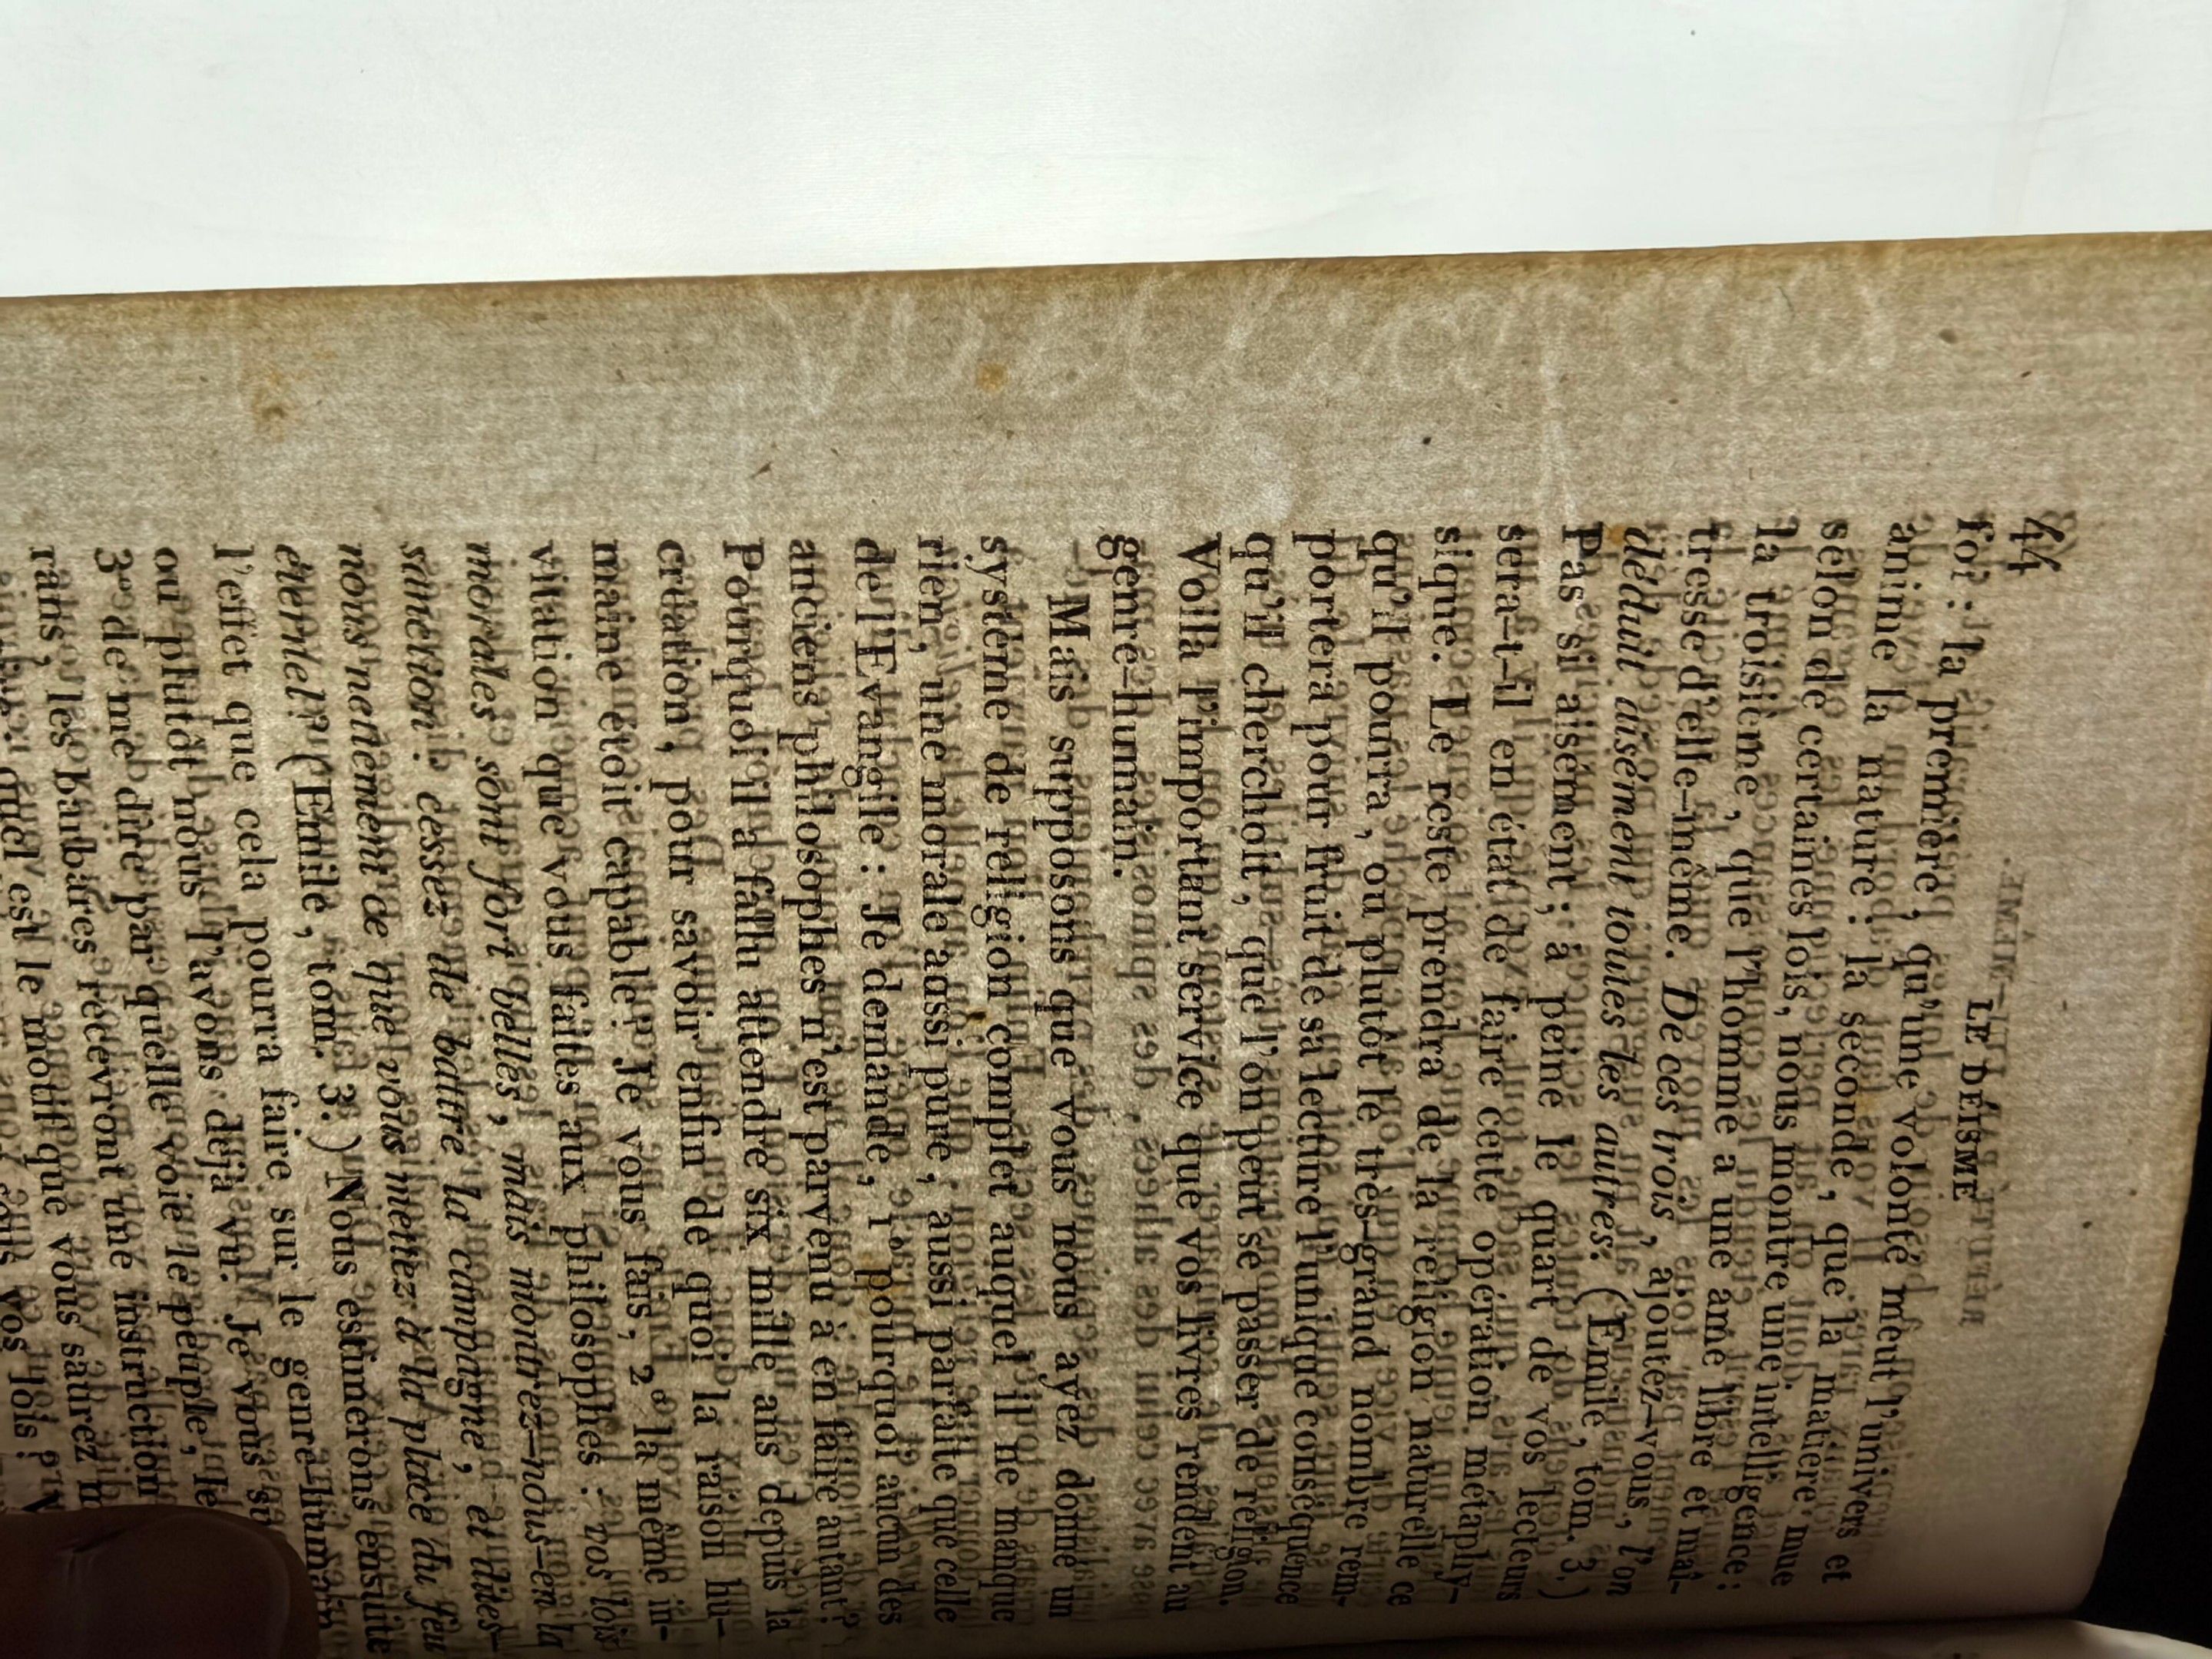 44 LE DÉISME
foi : la première, qu'une volonté meut l'univers et
anime la nature : la seconde, que la matière mue
selon de certaines lois, nous montre une intelligence :
la troisième, que l'homme a une ame libre et maî-
tresse d'elle-même. De ces trois, ajoutez-vous, l'on
déduit aisément toutes les autres. (Emile, tom. 3.)
Pas si aisément ; à peine le quart de vos lecteurs
sera-t-il en état de faire cette opération métaphy-
sique. Le reste prendra de la religion naturelle ce
qu'il pourra, ou plutôt le très-grand nombre rem-
portera pour fruit de sa lecture l'unique conséquence
qu'il cherchoit, que l'on peut se passer de religion.
Voilà l'important service que vos livres rendent au
genre-humain.
Mais supposons que vous nous ayez donné un
systême de religion complet auquel il ne manque
rien, une morale aussi pure, aussi parfaite que celle
de l'Evangile : Je demande, 1° pourquoi aucun des
anciens philosophes n'est parvenu à en faire autant?
Pourquoi il a fallu attendre six mille ans depuis la
création, pour savoir enfin de quoi la raison hu-
maine étoit capable? Je vous fais, 2° la même in-
vitation que vous faites aux philosophes : vos lois
morales sont fort belles, mais montrez-nous-en la
sanction : cessez de battre la campagne, et dites-
nous nettement ce que vous mettez à la place du feu
éternel? (Emile, tom. 3.) Nous estimerons ensuite
l'effet que cela pourra faire sur le genre-humain
ou plutôt nous l'avons déjà vu. Je vous
3° de me dire par quelle voie le peuple, le
rans, les barbares recevront une instruction
quel est le motif que vous saurez
sous vos lois?